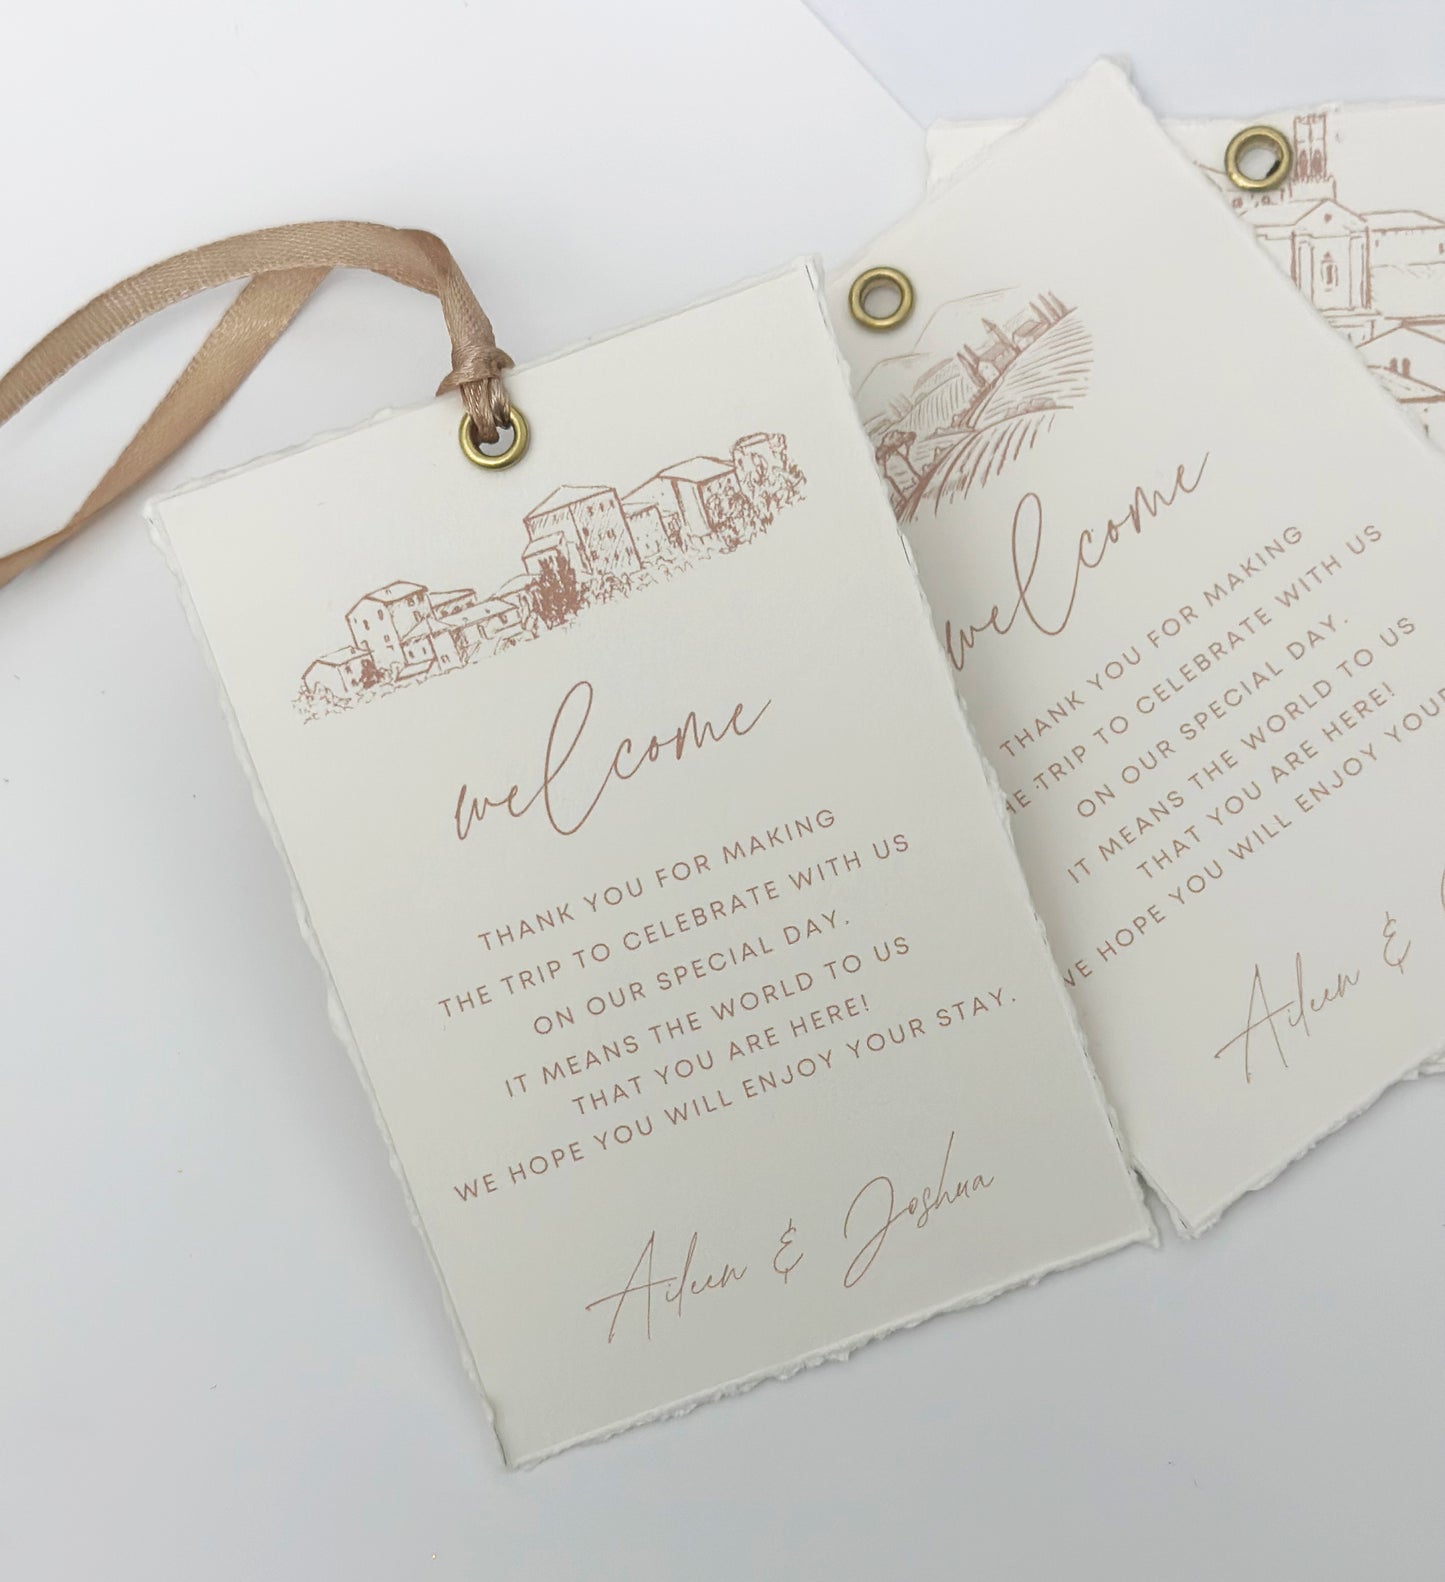 welcome
THANK YOU FOR MAKING
THE TRIP TO CELEBRATE WITH US
ON OUR SPECIAL DAY.
IT MEANS THE WORLD TO US
THAT YOU ARE HERE!
WE HOPE YOU WILL ENJOY YOUR STAY.
Aileen & Joshua
welcome
THANK YOU FOR MAKING
HE TRIP TO CELEBRATE WITH US
ON OUR SPECIAL DAY.
IT MEANS THE WORLD TO US
THAT YOU ARE HERE!
WE HOPE YOU WILL ENJOY YOUR
Aileen &